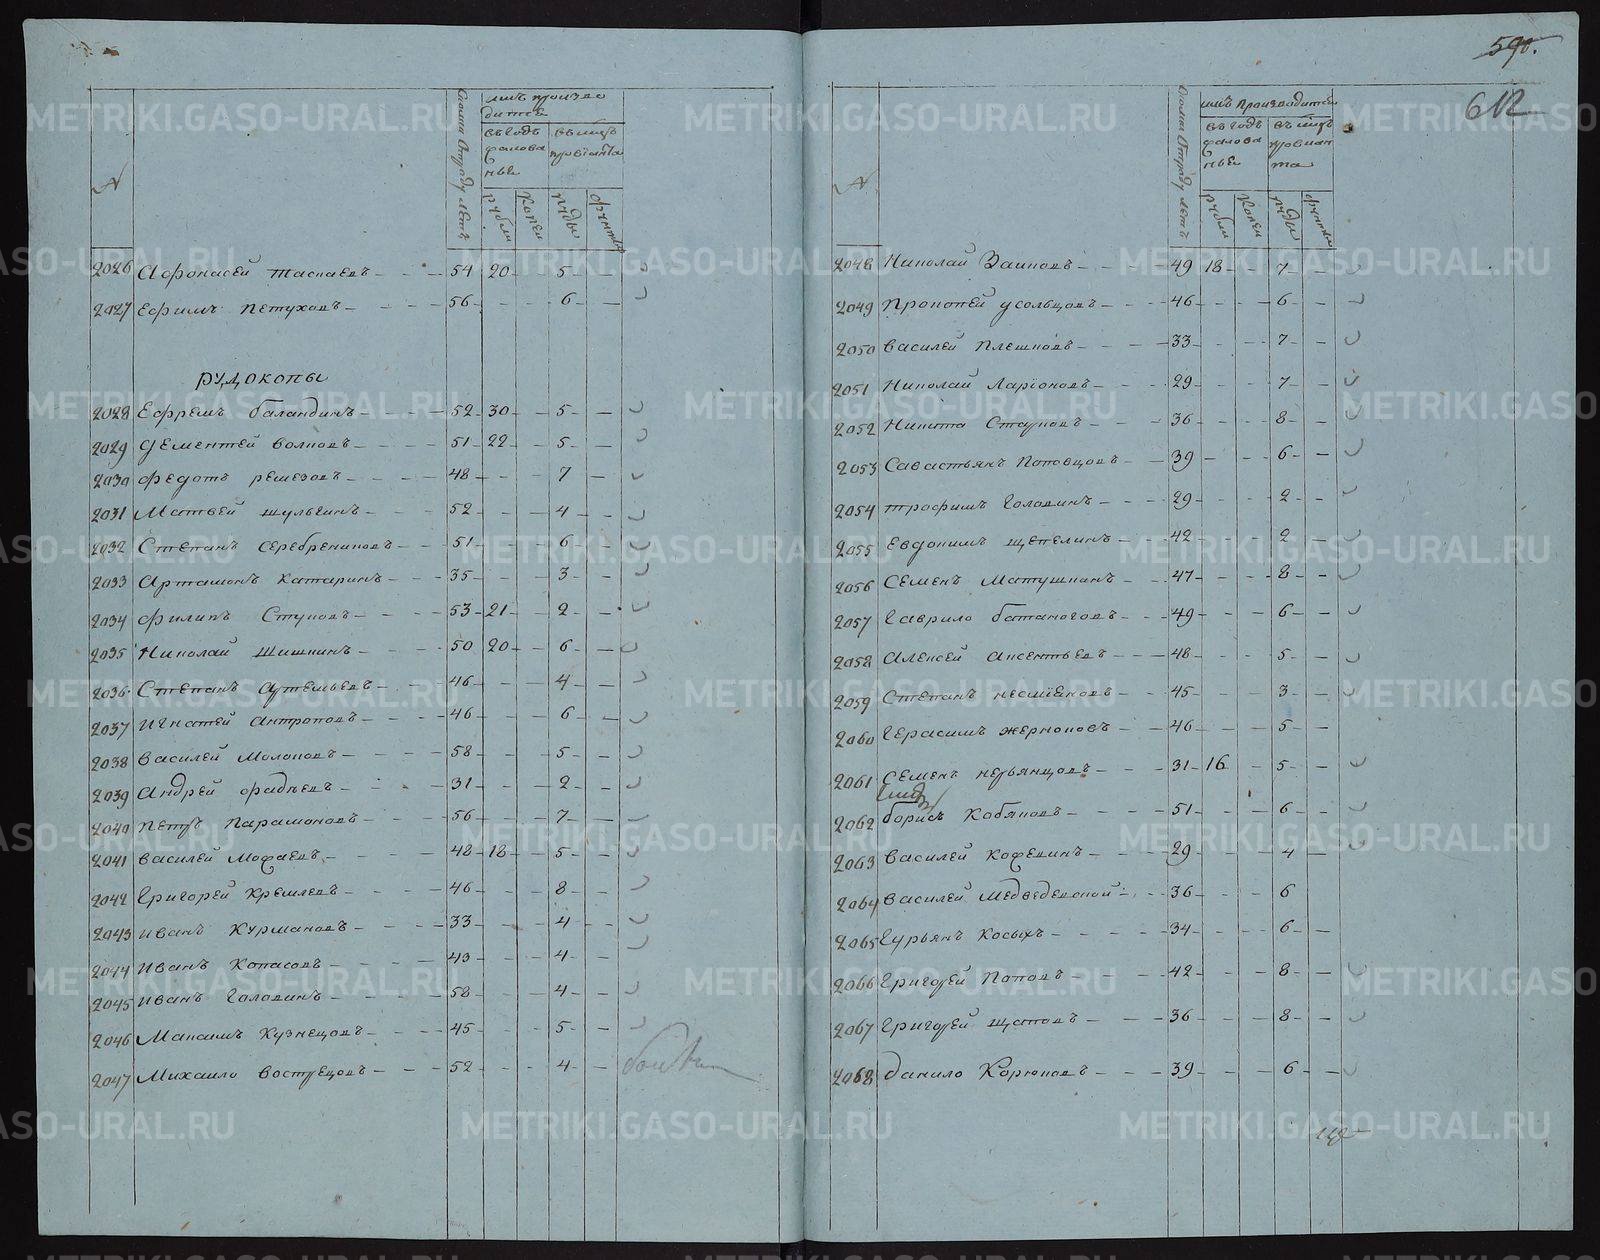 590.
612
№
Сколько Отроду летъ
имъ производитсѧ
въ годъ жалованьѧ
въ мцъ провіанта
рубли
копеи
пуды
фунты
2026 Афонасей Таскаевъ 54 20 5
2027 Ефимъ Петуховъ 56 6
Рудокопы
2028 Ефремъ Баландинъ 52 30 5
2029 Дементей Волковъ 51 22 5
2030 Федотъ Ремезовъ 48 7
2031 Матвей Шульгинъ 52 4
2032 Степанъ Серебрениковъ 51 6
2033 Артамонъ Катаринъ 35 3
2034 Филипъ Ступовъ 53 21 2
2035 Николай Шишкинъ 50 20 6
2036 Степанъ Артемьевъ 46 4
2037 Игнатей Антроповъ 46 6
2038 Василей Молоковъ 58 5
2039 Андрей Фадѣевъ 31 2
2040 Петръ Парамоновъ 56 7
2041 Василей Мокаевъ 48 18 5
2042 Григорей Кремлевъ 46 8
2043 Иванъ Курмановъ 33 4
2044 Иванъ Копасовъ 43 4
2045 Иванъ Головинъ 58 4
2046 Максимъ Кузнецовъ 45 5
2047 Михаило Вострецовъ 52 4
№
Сколько Отроду летъ
имъ производитсѧ
въ годъ жалованьѧ
въ мцъ провианта
рубли
копеи
пуды
фунты
2048 Николай Заиковъ 49 18 7
2049 Прокопей Усольцовъ 46 6
2050 Василей Плешковъ 33 7
2051 Николай Ларіоновъ 29 7
2052 Никита Стуковъ 36 8
2053 Савастьянъ Половцовъ 39 6
2054 Трофимъ Головинъ 29 2
2055 Евдокимъ Щепелинъ 42 2
2056 Семенъ Матушкинъ 47 8
2057 Гаврило Батаноговъ 49 6
2058 Алексей Аксентьевъ 48 5
2059 Степанъ Несмѣяновъ 45 3
2060 Герасимъ Жерноковъ 46 5
2061 Семенъ Невьянцовъ 31 16 5
2062 Борисъ Кобяковъ 51 6
2063 Василей Кофелинъ 29 4
2064 Василей Медведевской 36 6
2065 Гурьянъ Косыхъ 34 6
2066 Григорей Поповъ 42 8
2067 Григорей Щаповъ 36 8
2068 Данило Корюковъ 39 6
METRIKI.GASO-URAL.RU